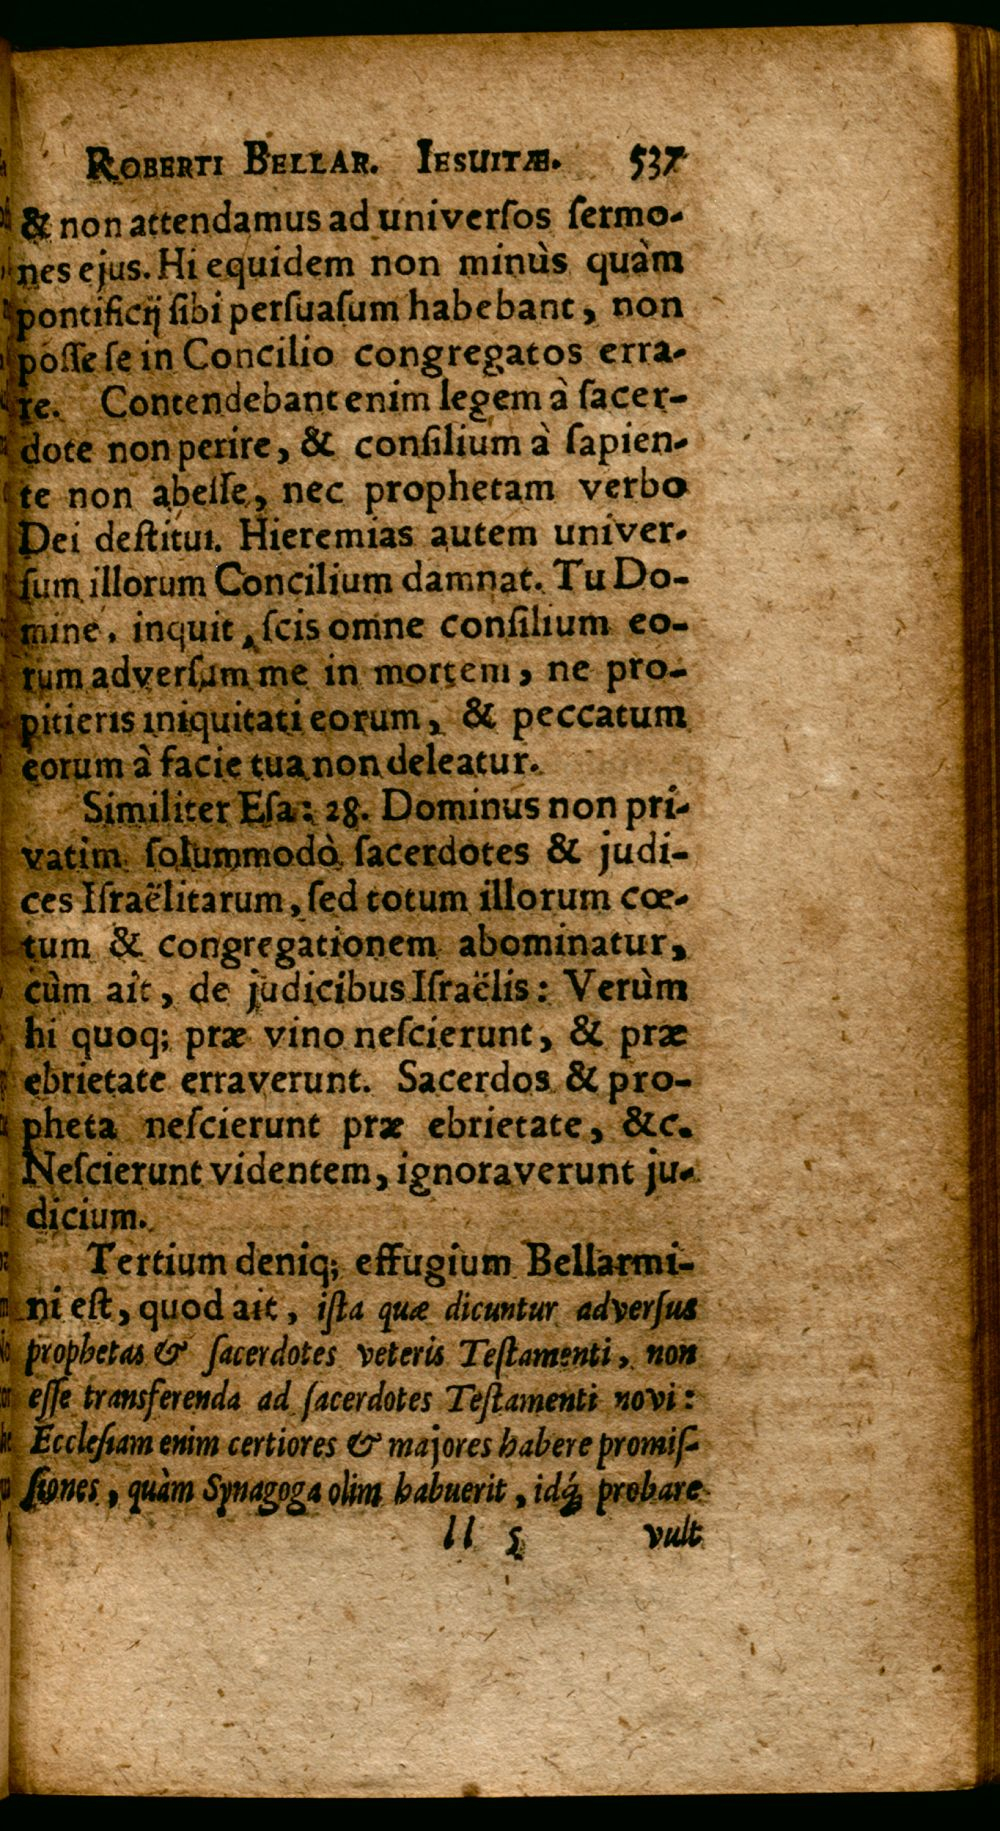 ROBERTI BELLAR. IESUITÆ. 537
& non attendamus ad univerſos ſermo-
nes ejus. Hi equidem non minùs quàm
pontificij ſibi perſuaſum habebant, non
poſſe ſe in Concilio congregatos erra-
re. Contendebant enim legem à ſacer-
dote non perire, & conſilium à ſapien-
te non abeſſe, nec prophetam verbo
Dei deſtitui. Hieremias autem univer-
ſum illorum Concilium damnat. Tu Do-
mine, inquit, ſcis omne conſilium eo-
rum adverſum me in mortem, ne pro-
pitieris iniquitati eorum, & peccatum
eorum à facie tua non deleatur.
Similiter Eſa: 28. Dominus non pri-
vatim ſolummodò ſacerdotes & judi-
ces Iſraëlitarum, ſed totum illorum cœ-
tum & congregationem abominatur,
cùm ait, de judicibus Iſraëlis: Verùm
hi quoq; præ vino neſcierunt, & præ
ebrietate erraverunt. Sacerdos & pro-
pheta neſcierunt præ ebrietate, &c.
Neſcierunt videntem, ignoraverunt ju-
dicium.
Tertium deniq; effugium Bellarmi-
ni eſt, quod ait, iſta quæ dicuntur adverſus
prophetas & ſacerdotes veteris Teſtamenti, non
eſſe transferenda ad ſacerdotes Teſtamenti novi:
Eccleſiam enim certiores & majores habere promiſ-
ſiones, quàm Synagoga olim habuerit, idq́; probare
ll 5 vult